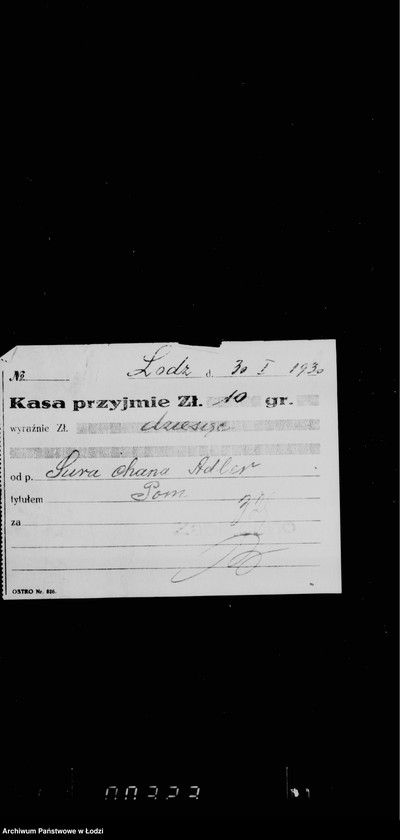 Lodz d. 30 I 1930
№
Kasa przyjmie Zł. 10 gr.
wyraźnie Zł. dziesięć
od p. Sura Chana Adler
tytułem Pom
za
OSTRO Nr. 826.
Archiwum Państwowe w Łodzi